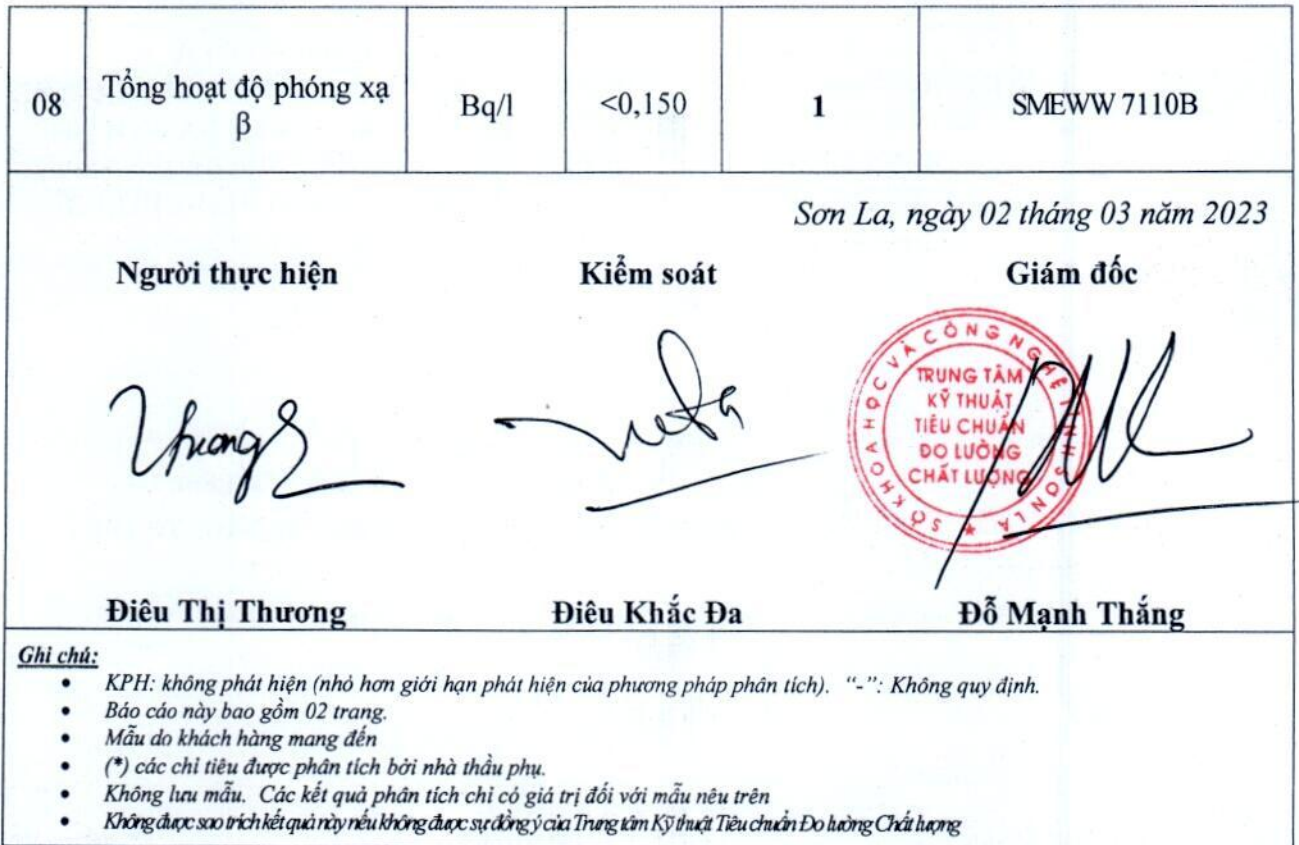 08 Tổng hoạt độ phóng xạ β Bq/l <0,150 1 SMEWW 7110B
Sơn La, ngày 02 tháng 03 năm 2023
Người thực hiện Kiểm soát Giám đốc
SỞ KHOA HỌC VÀ CÔNG NGHỆ TỈNH SƠN LA
TRUNG TÂM
KỸ THUẬT
TIÊU CHUẨN
ĐO LƯỜNG
CHẤT LƯỢNG
Điêu Thị Thương Điêu Khắc Đa Đỗ Mạnh Thắng
Ghi chú:
• KPH: không phát hiện (nhỏ hơn giới hạn phát hiện của phương pháp phân tích). "-": Không quy định.
• Báo cáo này bao gồm 02 trang.
• Mẫu do khách hàng mang đến
• (*) các chỉ tiêu được phân tích bởi nhà thầu phụ.
• Không lưu mẫu. Các kết quả phân tích chỉ có giá trị đối với mẫu nêu trên
• Không được sao trích kết quả này nếu không được sự đồng ý của Trung tâm Kỹ thuật Tiêu chuẩn Đo lường Chất lượng